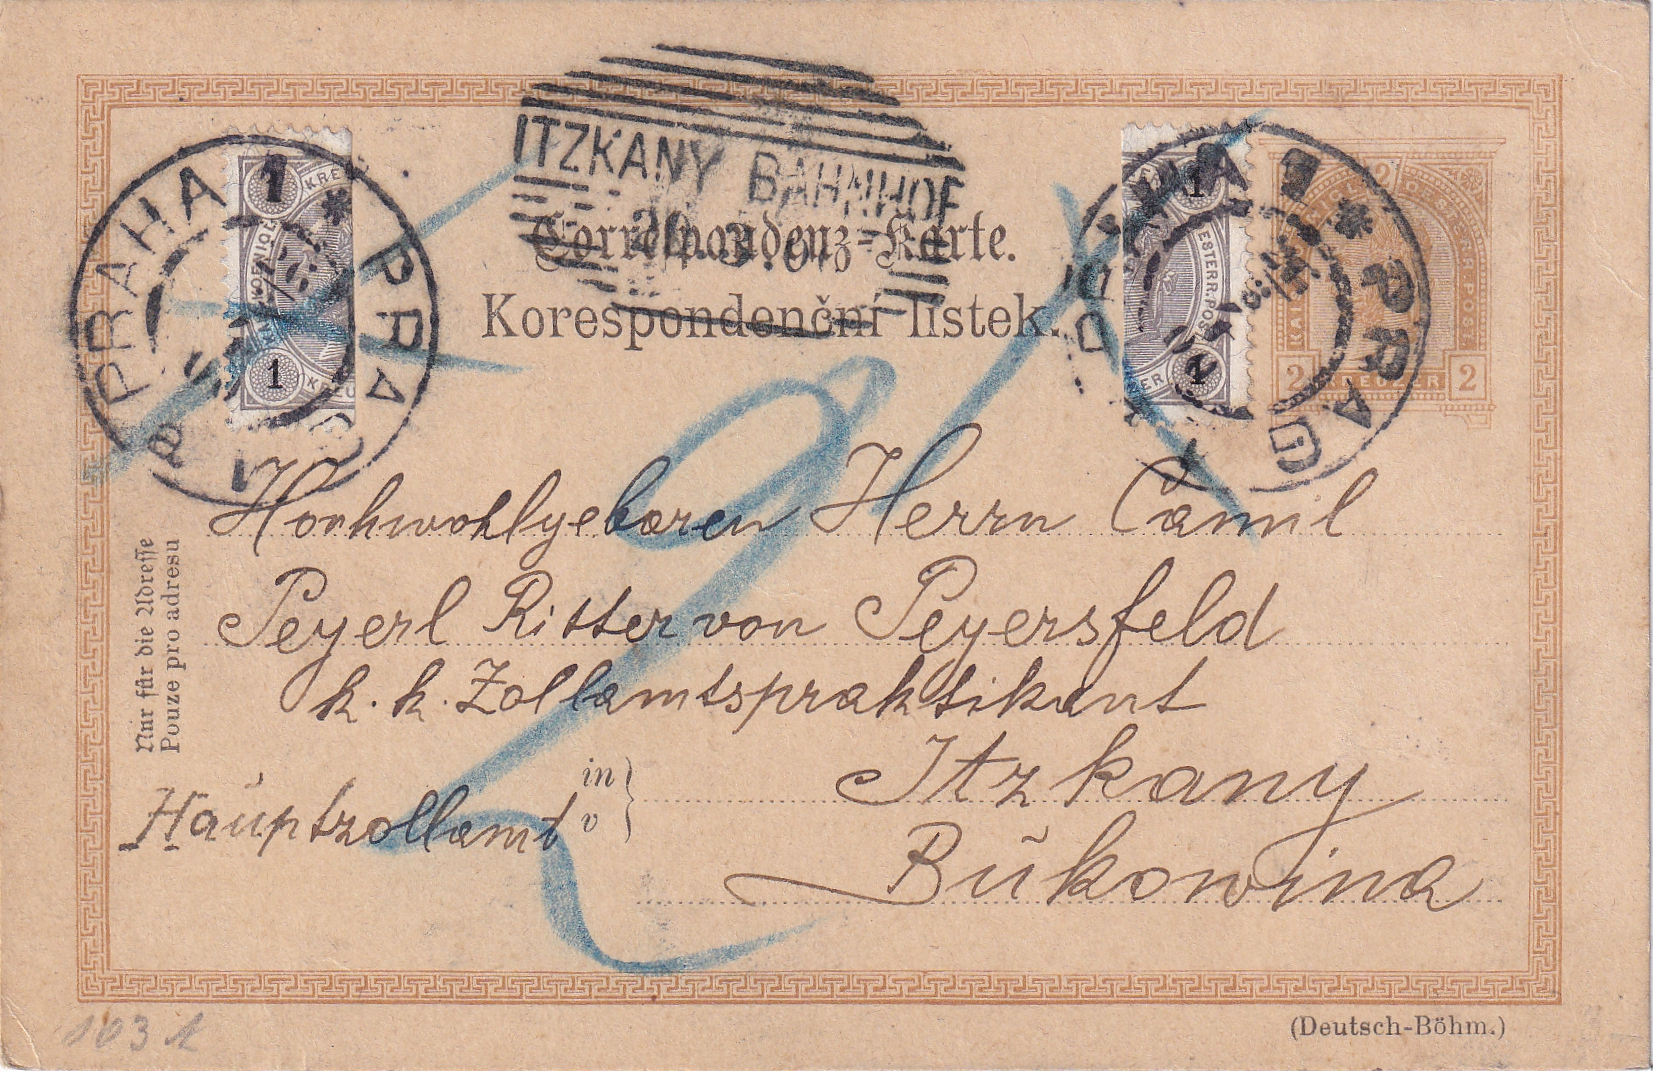 ITZKANY BAHNHOF
PRAHA 1 * PRAG 1
1
1
PRAHA 1 * PRAG
1
1
2
2 KREUZER 2
Correspondenz-Karte.
Korespondenční lístek.
2
Hochwohlgeboren Herrn Camil
Peyerl Ritter von Peyersfeld
k. k. Zollamtspraktikant
in
v
Itzkany
Hauptzollamt
Bukowina
Nur für die Adresse
Pouze pro adresu
103
(Deutsch-Böhm.)